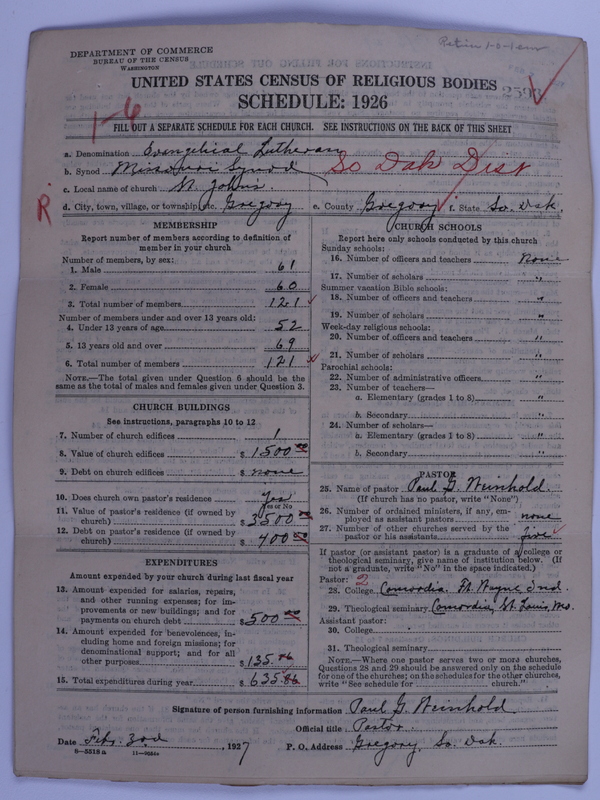 DEPARTMENT OF COMMERCE
BUREAU OF THE CENSUS
WASHINGTON
UNITED STATES CENSUS OF RELIGIOUS BODIES
SCHEDULE: 1926
1-6
FILL OUT A SEPARATE SCHEDULE FOR EACH CHURCH. SEE INSTRUCTIONS ON THE BACK OF THIS SHEET
a. Denomination Evangelical Lutheran
b. Synod Missouri Synod So Dak Dist
c. Local name of church St. Johns
R.
d. City, town, village, or township, etc. Gregory e. County Gregory f. State So. Dak.
MEMBERSHIP
Report number of members according to definition of member in your church
Number of members, by sex:
1. Male 61
2. Female 60
3. Total number of members 121
Number of members under and over 13 years old:
4. Under 13 years of age 52
5. 13 years old and over 69
6. Total number of members 121
NOTE.—The total given under Question 6 should be
same as the total of males and females given under Question 3.
CHURCH BUILDINGS
See instructions, paragraphs 10 to 12
7. Number of church edifices 1
8. Value of church edifices $ 1500.00
9. Debt on church edifices $ none
10. Does church own pastor's residence yes
Yes or No
11. Value of pastor's residence (if owned by
church) $ 3500.00
12. Debt on pastor's residence (if owned by
church) $ 400.00
EXPENDITURES
Amount expended by your church during last fiscal year
13. Amount expended for salaries, repairs,
and other running expenses; for im-
provements or new buildings; and for
payments on church debt $ 500.00
14. Amount expended for benevolences, in-
cluding home and foreign missions; for
denominational support; and for all
other purposes $ 135.86
15. Total expenditures during year $ 635.86
CHURCH SCHOOLS
Report here only schools conducted by this church
Sunday schools:
16. Number of officers and teachers None
17. Number of scholars "
Summer vacation Bible schools:
18. Number of officers and teachers "
19. Number of scholars "
Week-day religious schools:
20. Number of officers and teachers "
21. Number of scholars "
Parochial schools:
22. Number of administrative officers "
23. Number of teachers—
a. Elementary (grades 1 to 8) "
b. Secondary "
24. Number of scholars—
a. Elementary (grades 1 to 8) "
b. Secondary "
PASTOR
25. Name of pastor Paul G. Weinhold.
(If church has no pastor, write "None")
26. Number of ordained ministers, if any, em-
ployed as assistant pastors none
27. Number of other churches served by the
pastor or his assistants five
If pastor (or assistant pastor) is a graduate of a college or
theological seminary, give name of institution below. (If
not a graduate, write "No" in the space indicated.)
Pastor: 2
28. College Concordia Ft. Wayne Ind.
29. Theological seminary Concordia, St. Louis, Mo.
Assistant pastor:
30. College
31. Theological seminary
NOTE.—Where one pastor serves two or more churches,
Questions 28 and 29 should be answered only on the schedule
for one of the churches; on the schedules for the other churches,
write "See schedule for church."
Signature of person furnishing information Paul G. Weinhold
Official title Pastor
Date Feb. 3rd, 1927 P. O. Address Gregory, So. Dak.
8-5518 a